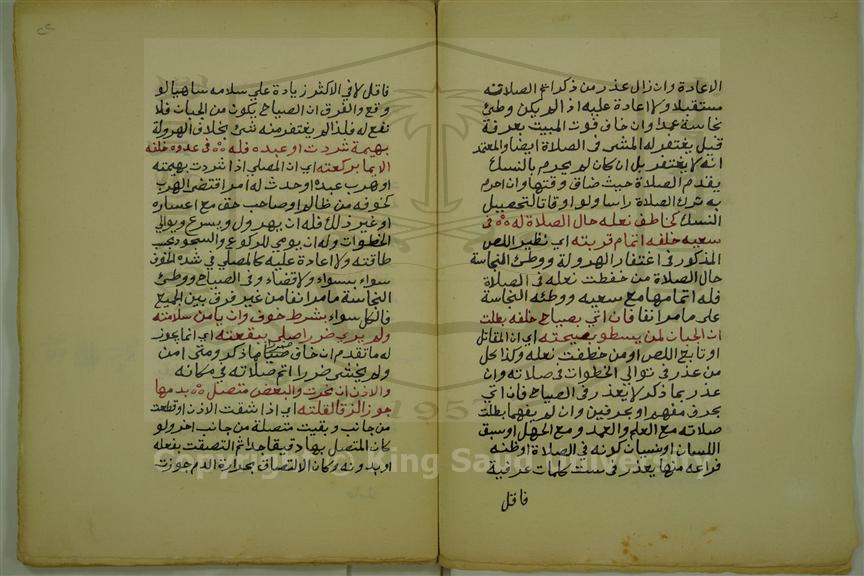 الاعادة وان زال عذر من ذكر اتم الصلاة
مستقبلا ولا اعادة عليه اذا لم يكن وطئ
نجاسة عمدا وان خاف فوت المبيت بعرفة
قيل يغتفر له المشي في الصلاة ايضا والمعتمد
انه لا يغتفر بل ان كان لم يحرم بالنسك
يقدم الصلاة حيث ضاق وقتها وان احرم
به ترك الصلاة راسا ولو اوقاتا لتحصيل
النسك كخاطف نعله حال الصلاة له في
سعيه خلفه اتمام قربته اي نظير اللص
المذكور في اغتفار الهرولة ووطئ النجاسة
حال الصلاة من خطفت نعله في الصلاة
فله اتمامها مع سعيه ووطئه النجاسة
على ما مر انفا فان اتى بصياح خلفه بطلت
ان الجبان لمن يسطو بصيحته اي ان المقاتل
او تابع اللص او من خطفت نعله وكذا كل
من عذر في توالي الخطوات في صلاته وان
عذر بما ذكر لا يعذر في الصياح فان اتى
بحرف مفهم او بحرفين وان لم يفهما بطلت
صلاته مع العلم والعمد ومع الجهل او سبق
اللسان او نسيان كونه في الصلاة او ظنه
فراغه منها يعذر في ست كلمات عرفية
فاقل
فاقل لا في الاكثر زيادة على سلامه ساهيا لو
وقع والفرق ان الصياح يكون من الجبان فلا
نفع له فلذا لم يغتفر منه شئ بخلاف الهرولة
بهيمة شردت او عبده فله في عدوه فلته
الايما بركعته اي ان المصلي اذا شردت بهيمته
او هرب عبده او حدث له امر اقتضى الهرب
كخوفه من ظالم او صاحب حق مع اعساره
او غير ذلك فله ان يهرول ويسرع ويوالي
الخطوات وله ان يومي للركوع والسجود بحسب
طاقته ولا اعادة عليه كالمصلي في شدة الخوف
سواء بسواء ولا قضاء وفي الصياح ووطئ
النجاسة ما مر انفا من غير فرق بين الجميع
فالكل سواء بشرط خوف وان يامن سلامته
ولم يرى ضررا صلى ببقعته اي انما يجوز
له ما تقدم ان خاف ضياع ما ذكر ومتى امن
ولم يخشى ضررا اتم صلاته في مكانه
والاذن ان بحرت والبعض متصل بدمها
جوز الزقالفلته اي اذا شقت الاذن او قطعت
من جانب وبقيت متصلة من جانب اخر ولو
كان المتصل بها دقيقا جدا ثم التصقت بفعله
او بدونه وكان الالتصاق بحرارة الدم جوزت
Copyright © King Saud University
1957